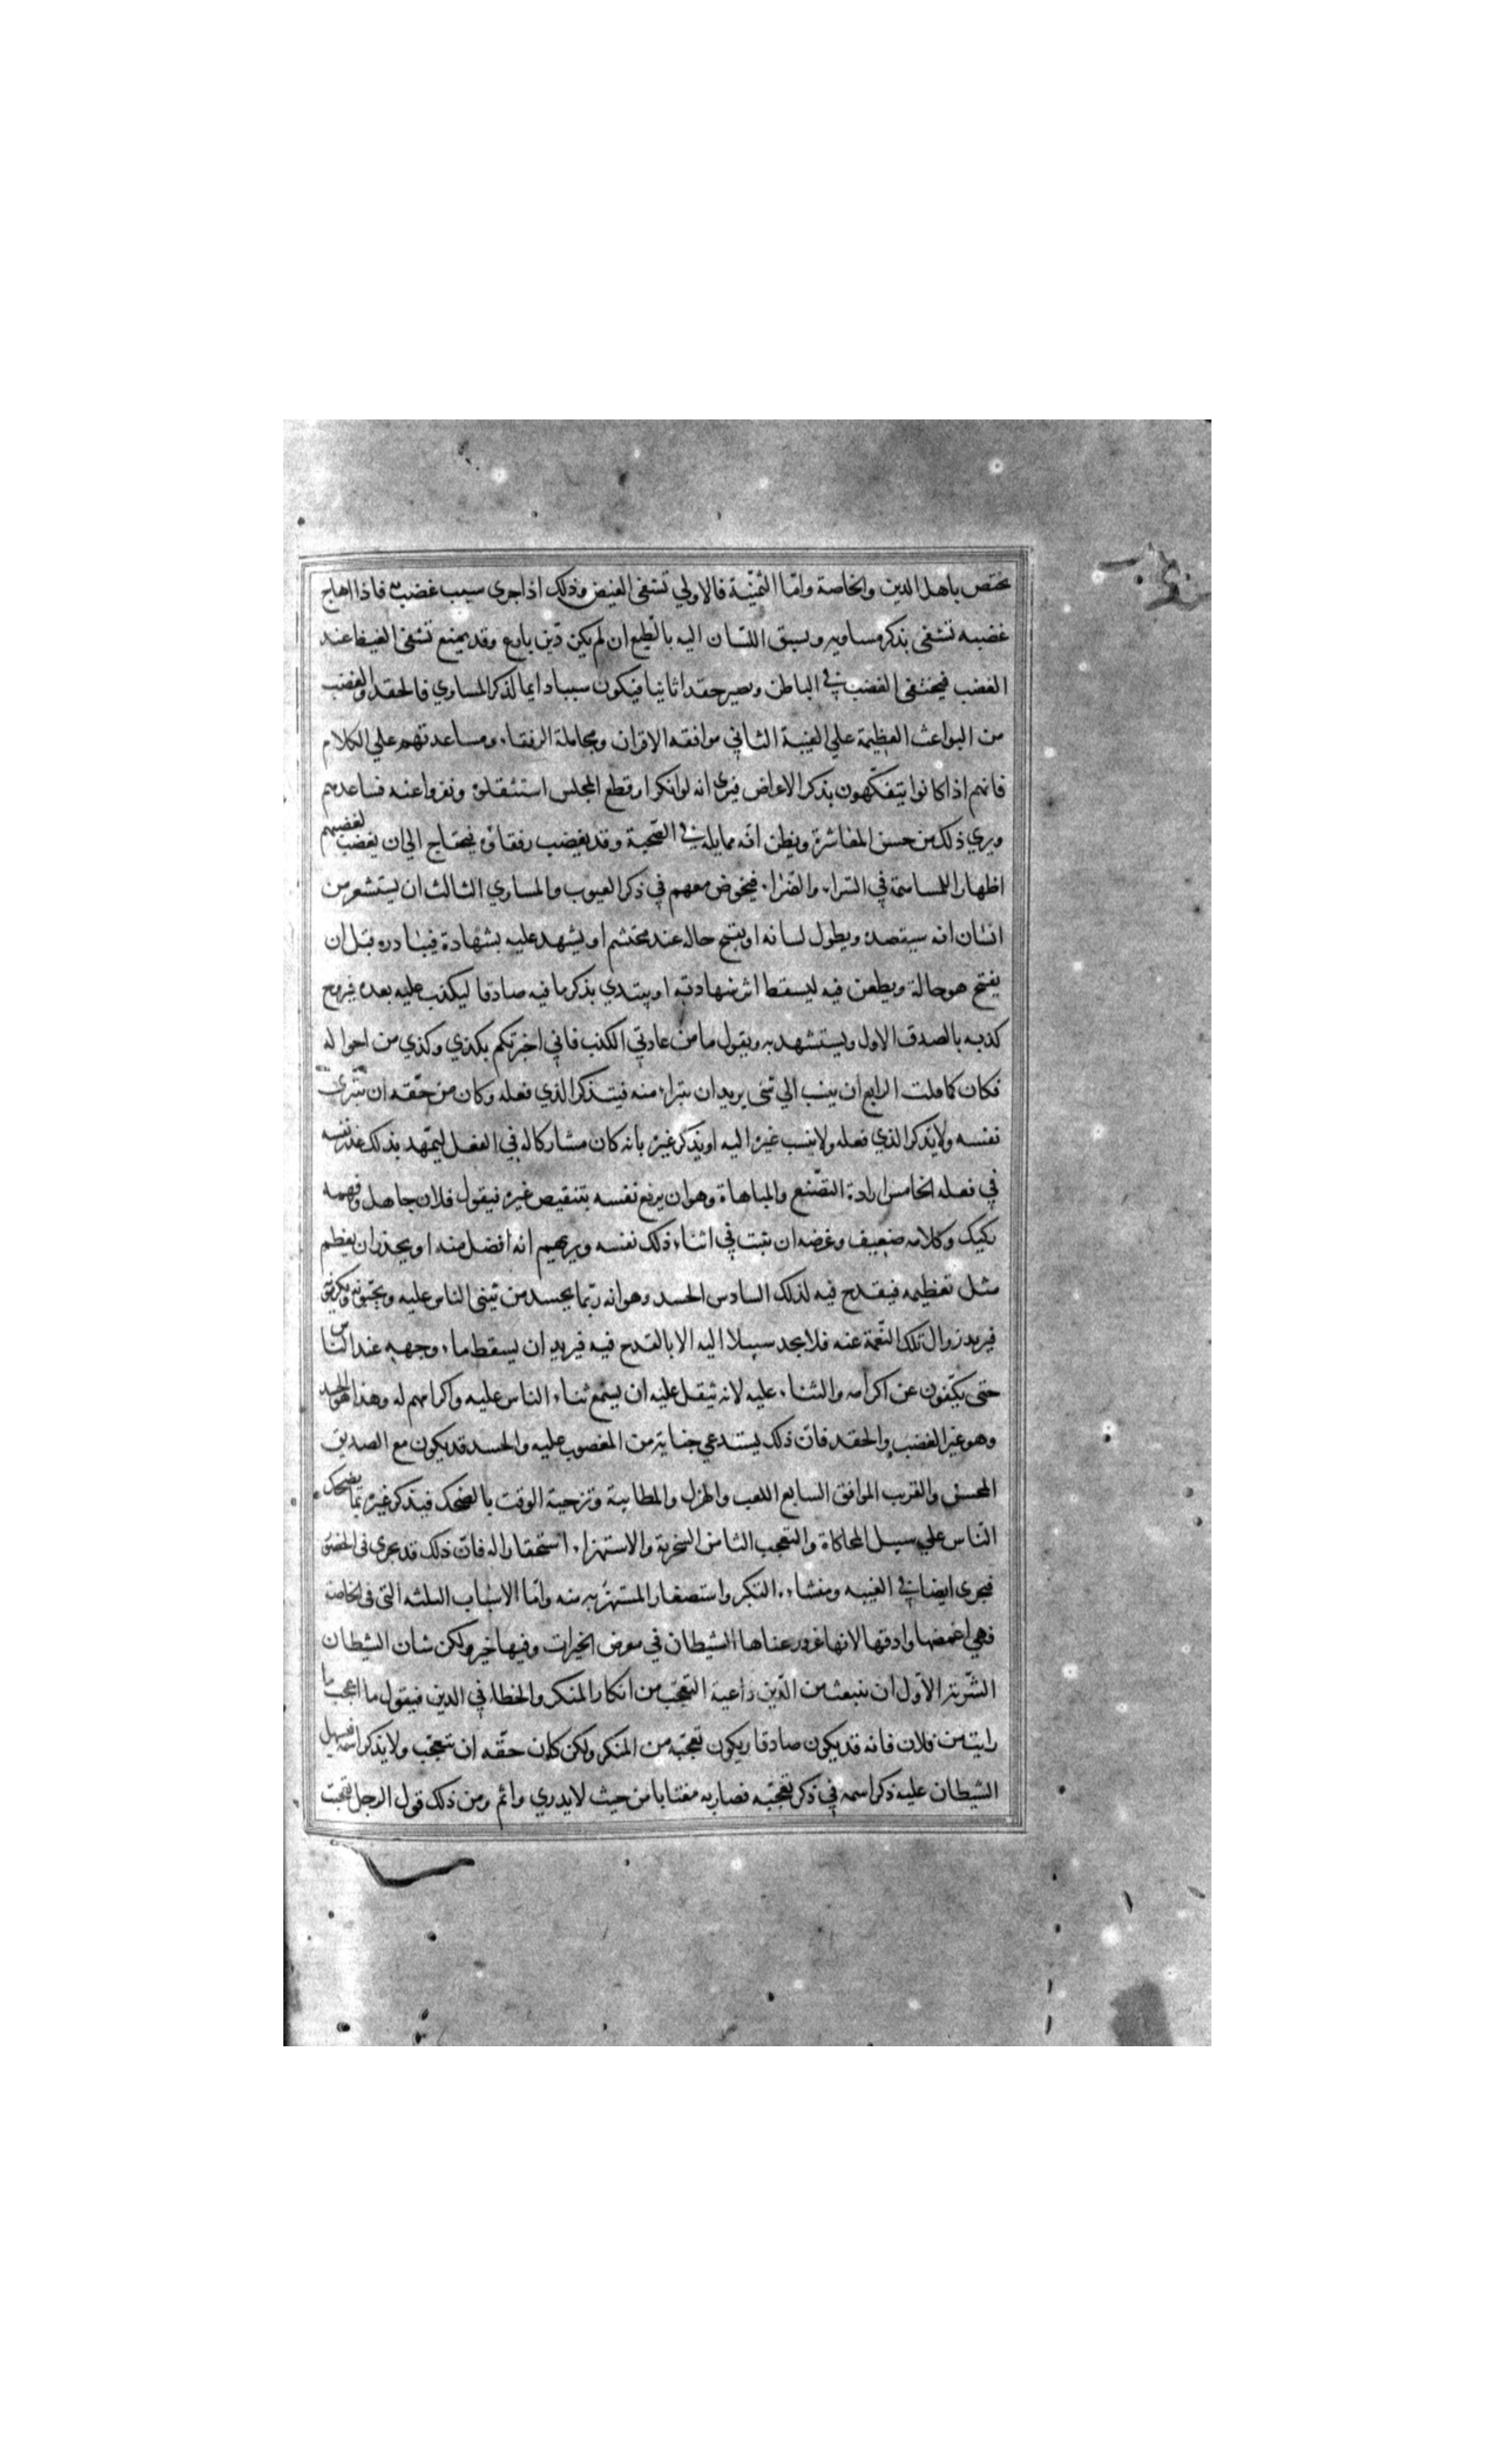 يختص باهل الدين والخاصة وامّا الثمنية فالاولي تشفى الغيض وذلك اذا جرى سبب غضب به فاذا هاج
غضبه تشفى بذكر مساويه ويسبق اللسان اليه بالطبع ان لم يكن دين بارع وقد يمنع تشفى الغيظ عند
الغضب فيختفى الغضب في الباطن ويصير حقدا ثانيا فيكون سببا دايما لذكر المساوي فالحقد والغضب
من البواعث العظيمة علي الغيبة الثاني موافقه الاقران ومجاملة الرفقاء ومساعدتهم علي الكلام
فانهم اذا كانوا يتفكّهون بذكر الاعراض فيرى انه لو انكر او قطع المجلس استثقلوه ونفروا عنه فساعدهم
ويري ذلك من حسن المعاشرة ويظن انّه مجاملة في الصّحبة وقد يغضب رفقاؤه فيحتاج الي ان يغضب لغضبهم
اظهارا للمساهمة في السّراء والضرّاء فيخوض معهم في ذكر العيوب والمساوي الثالث ان يستشعر من
انسان انه سيقصده ويطول لسانه او يقبح حاله عند محتشم او يشهد عليه بشهادة فيبادره قبل ان
يقبح هو حالة ويطعن فيه ليسقط اثر شهادته او يبتدي بذكر ما فيه صادقا ليكذب عليه بعده فيروج
كذبه بالصدق الاول ويستشهد به ويقول ما من عادتي الكذب فاني اخبرتكم بكذي وكذي من احواله
فكان كما قلت الرابع ان ينسب الي شى يريد ان يتبراء منه فيتذكر الذي فعله وكان من حقّه ان يتبرّئ
نفسه ولا يذكر الذي فعله ولا ينسب غيره اليه او يذكر غيره بانه كان مشاركا له في الفعل ليتمهد بذلك عذر نفسه
في فعله الخامس ارادة التصّنع والمباهاة وهو ان يرفع نفسه بتنقيص غيره فيقول فلان جاهل وفهمه
ركيك وكلامه ضعيف وغرضه ان يثبت في اثناء ذلك نفسه ويريهم انه افضل منه او يحذر ان يعظم
مثل تعظيمه فيقدح فيه لذلك السادس الحسد وهو انه ربّما يحسد من يثني الناس عليه ويحبّونه ويكرمونه
فيريد زوال تلك النّعمة عنه فلا يجد سبيلا اليه الا بالقدح فيه فيريد ان يسقط ماء وجهه عند الناس
حتى يكفّون عن اكرامه والثناء عليه لانه يثقل عليه ان يسمع ثناء الناس عليه واكرامهم له وهذا هو الحسد
وهو غير الغضب والحقد فانّ ذلك يستدعي جناية من المغضوب عليه والحسد قد يكون مع الصديق
المحسن والقريب الموافق السابع اللعب والهزل والمطايبة وتزجية الوقت بالضحك فيذكر غيره بما يضحك
النّاس علي سبيل المحاكاة والتعجب الثامن السخرية والاستهزاء استحقارا له فانّ ذلك قد يجرى في الحضور
فيجرى ايضا في الغيبه ومنشاءه التكبر واستصغار المستهزئ به منه وامّا الاسباب الثلثه التى في الخاصة
فهي اغمضها وادقها لانها شرور عباها الشيطان في معرض الخيرات وفيها خير ولكن شاب الشيطان
الشّر بها الاوّل ان ينبعث من الدّين داعية التعجّب من انكار المنكر والخطاء في الدين فيقول ما اعجب ما
رايت من فلان فانه قد يكون صادقا ويكون تعجّبه من المنكر ولكن كان حقّه ان يتعجّب ولا يذكر اسمه فيسهل
الشيطان عليه ذكر اسمه في ذكر تعجّبه فصار به مغتابا من حيث لا يدري واثم ومن ذلك قول الرجل تعجبت